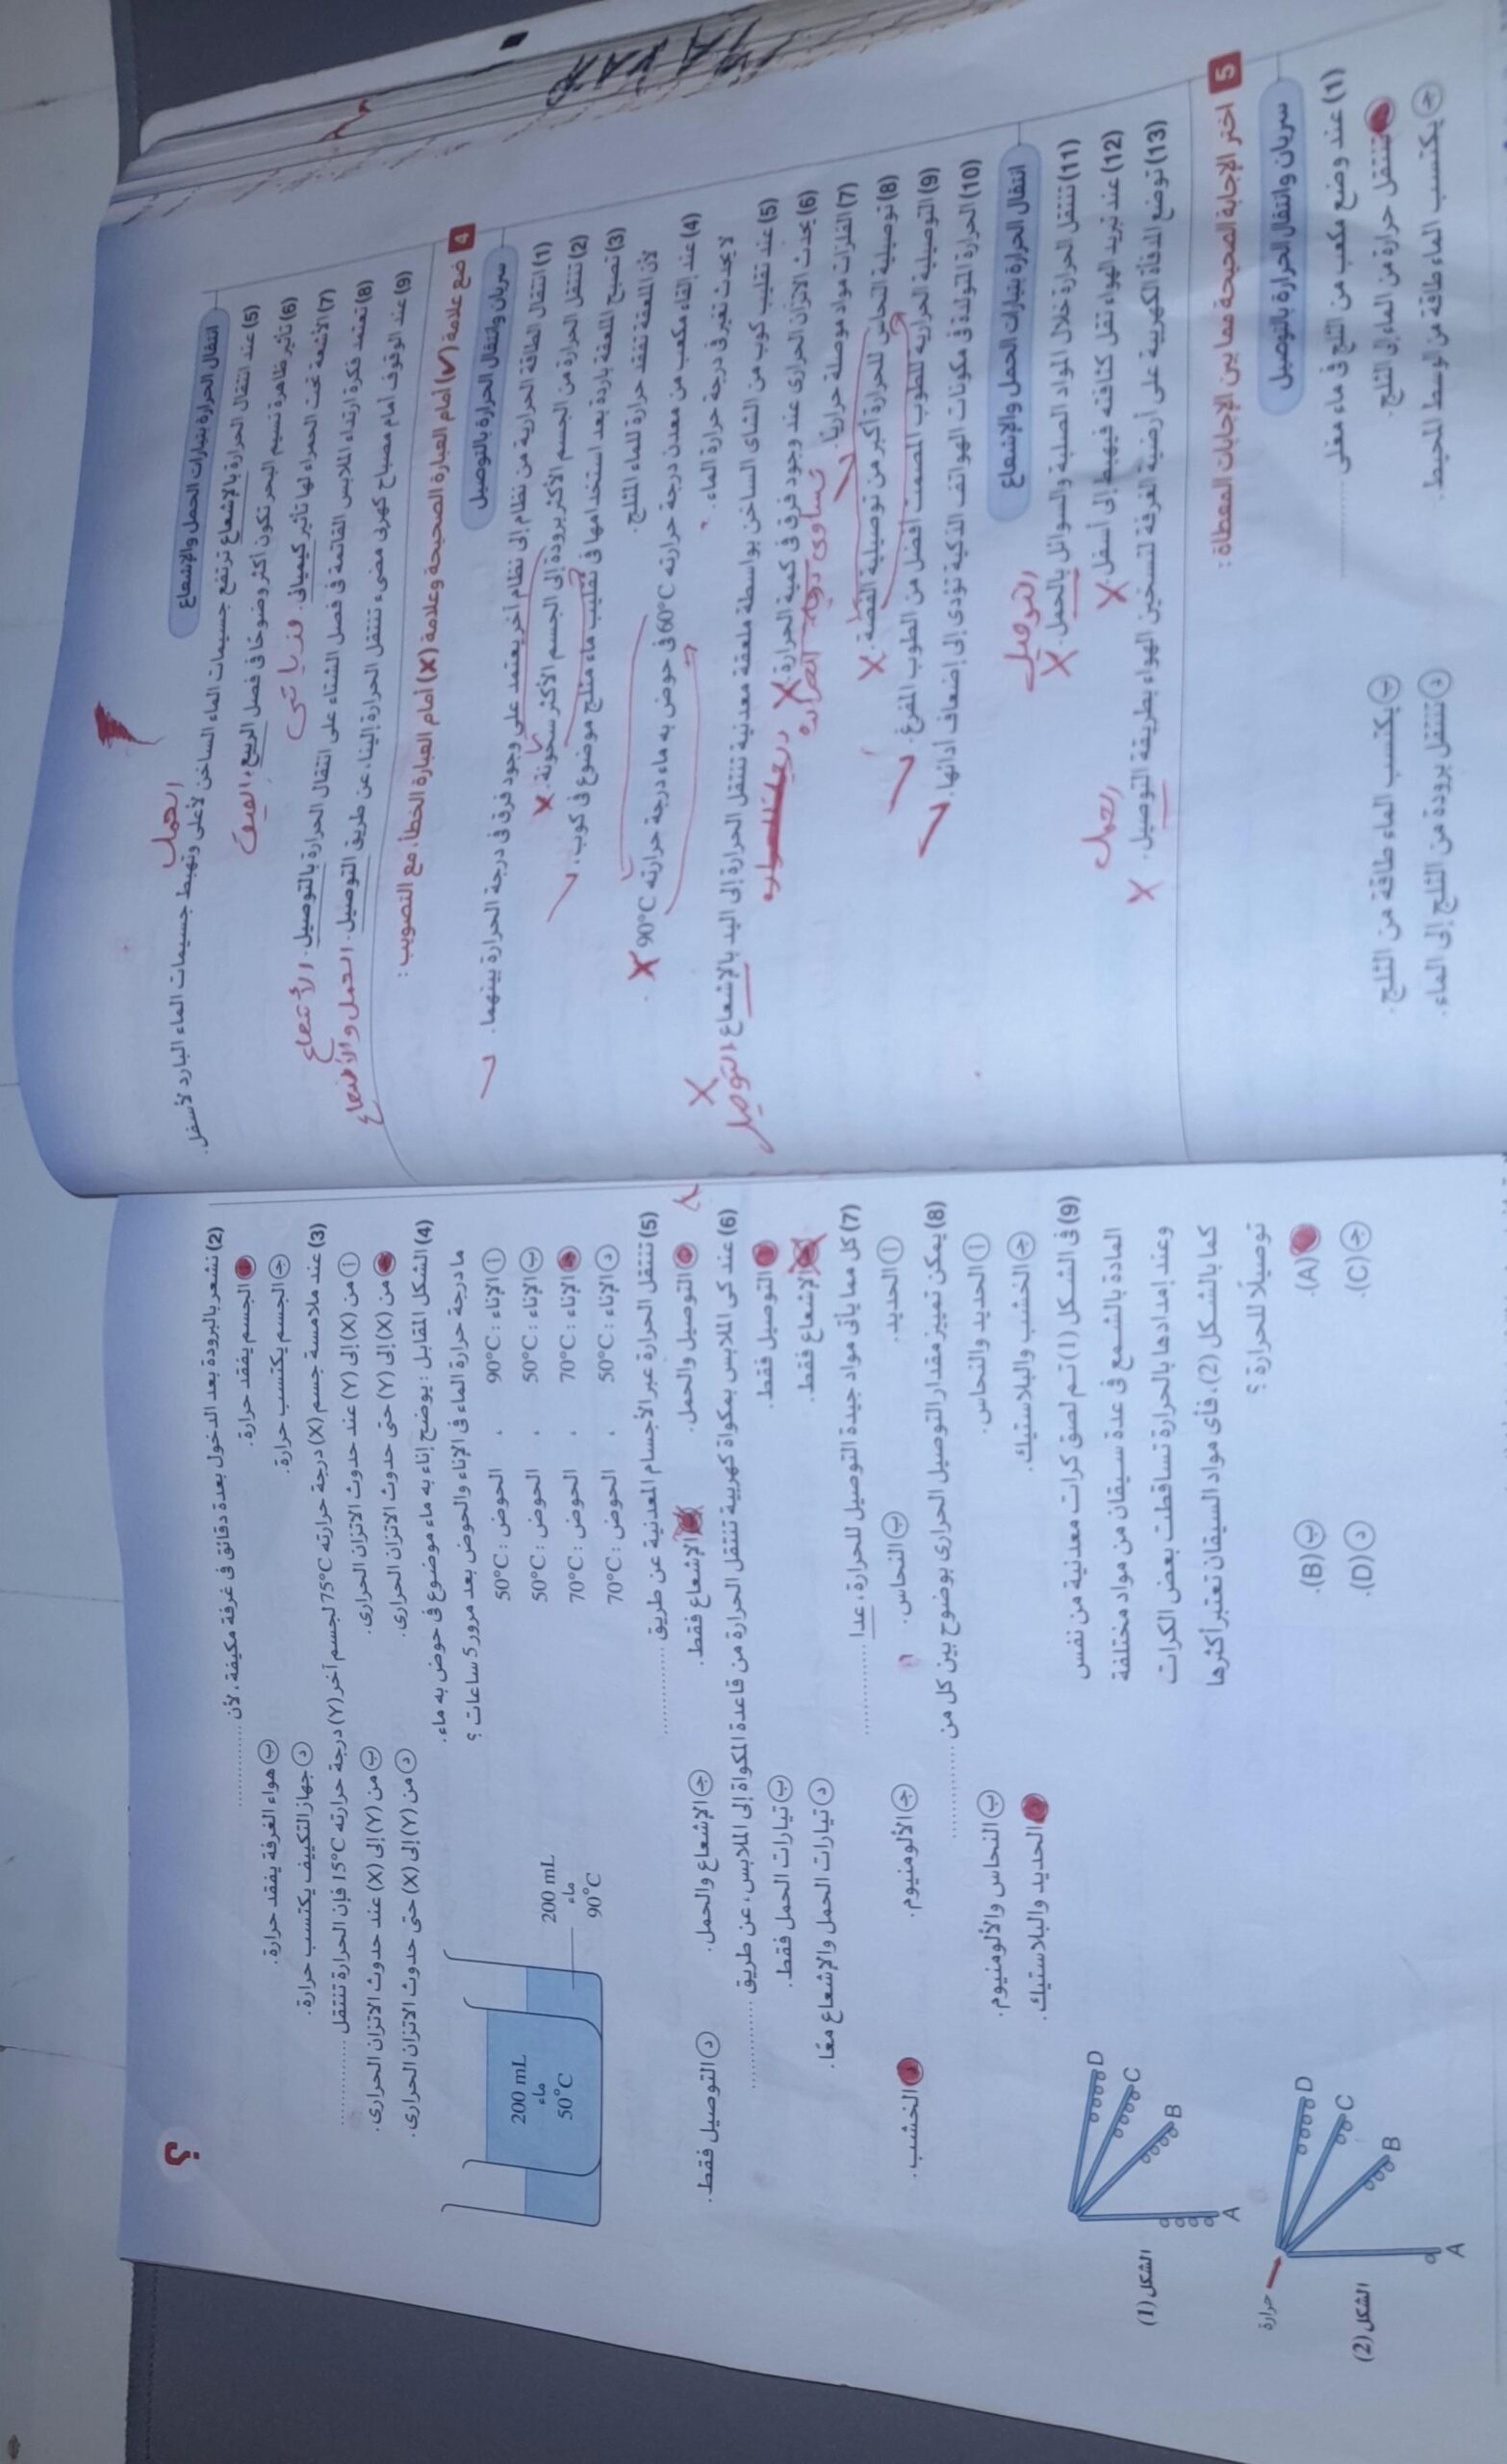 انتقال الحرارة بتيارات الحمل والإشعاع
(5) عند انتقال الحرارة بالإشعاع ترتفع جسيمات الماء الساخن لأعلى وتهبط جسيمات الماء البارد لأسفل.
الحمل
(6) تأثير ظاهرة نسيم البحر تكون أكثر وضوحًا فى فصل الربيع. الصيف
(7) الأشعة تحت الحمراء لها تأثير كيميائى.
(8) تعتمد فكرة ارتداء الملابس القاتمة فى فصل الشتاء على انتقال الحرارة بالتوصيل. الأشعاع
(9) عند الوقوف أمام مصباح كهربى مضىء تنتقل الحرارة إلينا، عن طريق التوصيل. الحمل والأشعاع
4 ضع علامة (✓) أمام العبارة الصحيحة وعلامة (X) أمام العبارة الخطأ، مع التصويب :
سريان وانتقال الحرارة بالتوصيل
(1) انتقال الطاقة الحرارية من نظام إلى نظام آخر يعتمد على وجود فرق فى درجة الحرارة بينهما. ✓
(2) تنتقل الحرارة من الجسم الأكثر برودة إلى الجسم الأكثر سخونة. X
(3) تصبح الملعقة باردة بعد استخدامها فى تقليب ماء مثلج موضوع فى كوب، ✓
لأن الملعقة تفقد حرارة للماء المثلج.
(4) عند إلقاء مكعب من معدن درجة حرارته 60°C فى حوض به ماء درجة حرارته 90°C X
لا يحدث تغير فى درجة حرارة الماء.
(5) عند تقليب كوب من الشاى الساخن بواسطة ملعقة معدنية تنتقل الحرارة إلى اليد بالإشعاع. X
التوصيل
(6) يحدث الاتزان الحرارى عند وجود فرق فى كمية الحرارة. X
تساوى درجة الحرارة
(7) الفلزات مواد موصلة حراريًا. ✓
(8) توصيلية النحاس للحرارة أكبر من توصيلية الفضة. X
(9) التوصيلية الحرارية للطوب المصمت أفضل من الطوب المفرغ. ✓
(10) الحرارة المتولدة فى مكونات الهواتف الذكية تؤدى إلى إضعاف أدائها. ✓
انتقال الحرارة بتيارات الحمل والإشعاع
(11) تنتقل الحرارة خلال المواد الصلبة والسوائل بالحمل. X
التوصيل
(12) عند تبريد الهواء تقل كثافته فيهبط إلى أسفل. X
(13) توضع المدفأة الكهربية على أرضية الغرفة لتسخين الهواء بطريقة التوصيل. X
الحمل
5 اختر الإجابة الصحيحة مما بين الإجابات المعطاة :
سريان وانتقال الحرارة بالتوصيل
(1) عند وضع مكعب من الثلج فى ماء مغلى ............
تنتقل حرارة من الماء إلى الثلج.
ب يكتسب الماء طاقة من الثلج.
ج يكتسب الماء طاقة من الوسط المحيط.
د تنتقل برودة من الثلج إلى الماء.
؟
(2) نشعر بالبرودة بعد الدخول بعدة دقائق فى غرفة مكيفة، لأن ............
أ الجسم يفقد حرارة.
ب هواء الغرفة يفقد حرارة.
ج الجسم يكتسب حرارة.
د جهاز التكييف يكتسب حرارة.
(3) عند ملامسة جسم (X) درجة حرارته 75°C لجسم آخر (Y) درجة حرارته 15°C فإن الحرارة تنتقل ............
أ من (X) إلى (Y) عند حدوث الاتزان الحرارى.
ب من (Y) إلى (X) عند حدوث الاتزان الحرارى.
من (X) إلى (Y) حتى حدوث الاتزان الحرارى.
د من (Y) إلى (X) حتى حدوث الاتزان الحرارى.
(4) الشكل المقابل : يوضح إناء به ماء موضوع فى حوض به ماء.
ما درجة حرارة الماء فى الإناء والحوض بعد مرور 5 ساعات ؟
أ الإناء : 90°C ، الحوض : 50°C
ب الإناء : 50°C ، الحوض : 50°C
ج الإناء : 70°C ، الحوض : 70°C
د الإناء : 50°C ، الحوض : 70°C
200 mL
ماء
50°C
200 mL
ماء
90°C
(5) تنتقل الحرارة عبر الأجسام المعدنية عن طريق ............
التوصيل والحمل.
الإشعاع فقط.
ج الإشعاع والحمل.
د التوصيل فقط.
(6) عند كى الملابس بمكواة كهربية تنتقل الحرارة من قاعدة المكواة إلى الملابس، عن طريق ............
التوصيل فقط.
ب تيارات الحمل فقط.
الإشعاع فقط.
د تيارات الحمل والإشعاع معًا.
(7) كل مما يأتى مواد جيدة التوصيل للحرارة، عدا ............
أ الحديد.
ب النحاس.
ج الألومنيوم.
د الخشب.
(8) يمكن تمييز مقدار التوصيل الحرارى بوضوح بين كل من ............
أ الحديد والنحاس.
ب النحاس والألومنيوم.
ج الخشب والبلاستيك.
الحديد والبلاستيك.
(9) فى الشكل (1) تم لصق كرات معدنية من نفس
المادة بالشمع فى عدة سيقان من مواد مختلفة
وعند إمدادها بالحرارة تساقطت بعض الكرات
كما بالشكل (2)، فأى مواد السيقان تعتبر أكثرها
توصيلًا للحرارة ؟
(A).
ب (B).
ج (C).
د (D).
A
B
C
D
الشكل (1)
حرارة
A
B
C
D
الشكل (2)